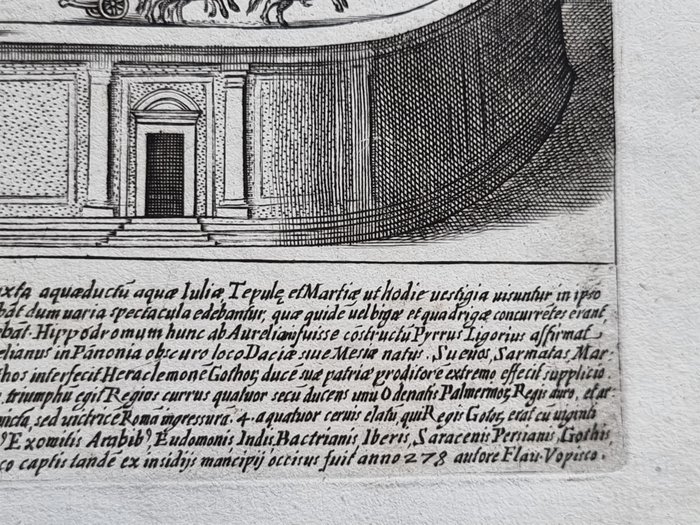 uxta aquæductū aquæ Iuliæ, Tepulę et Martiæ ut hodie uestigia uisuntur in ipso
bāt dum uaria spectacula edebantur, quæ quide uel bigæ et quadrigæ concurrētes erant,
ebāt. Hippodromum hunc ab Aurelian fuisse cōstructū Pyrrus Ligorius affirmat
elianus in Pānonia obscuro loco Daciæ siue Mesiæ natus. Sueuos, Sarmatas, Mar
thos interfecit Heraclemonē Gothor, ducē suæ patriæ proditorē extremo effecit supplicio
, triumphū egit Regios currus quatuor secū ducens unū Odenatis Palmernor, Regis auro, et ar
uicta, sed uictricē Romā ingressura. 4. a quatuor ceruis elatū, qui Regis Gotor, erat cū uiginti
Exomitis Arabib⁹, Eudomonis Indis, Bactrianis, Iberis, Saracenis Persianis, Gothis
co captis tandē ex insidijs mancipij occisus fuit anno 278 autore Flau. Vopisco.